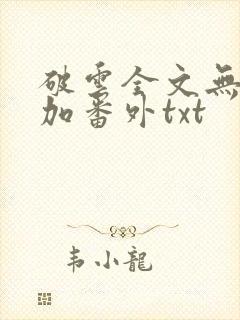 破雲全文無
加番外txt
韦小龍